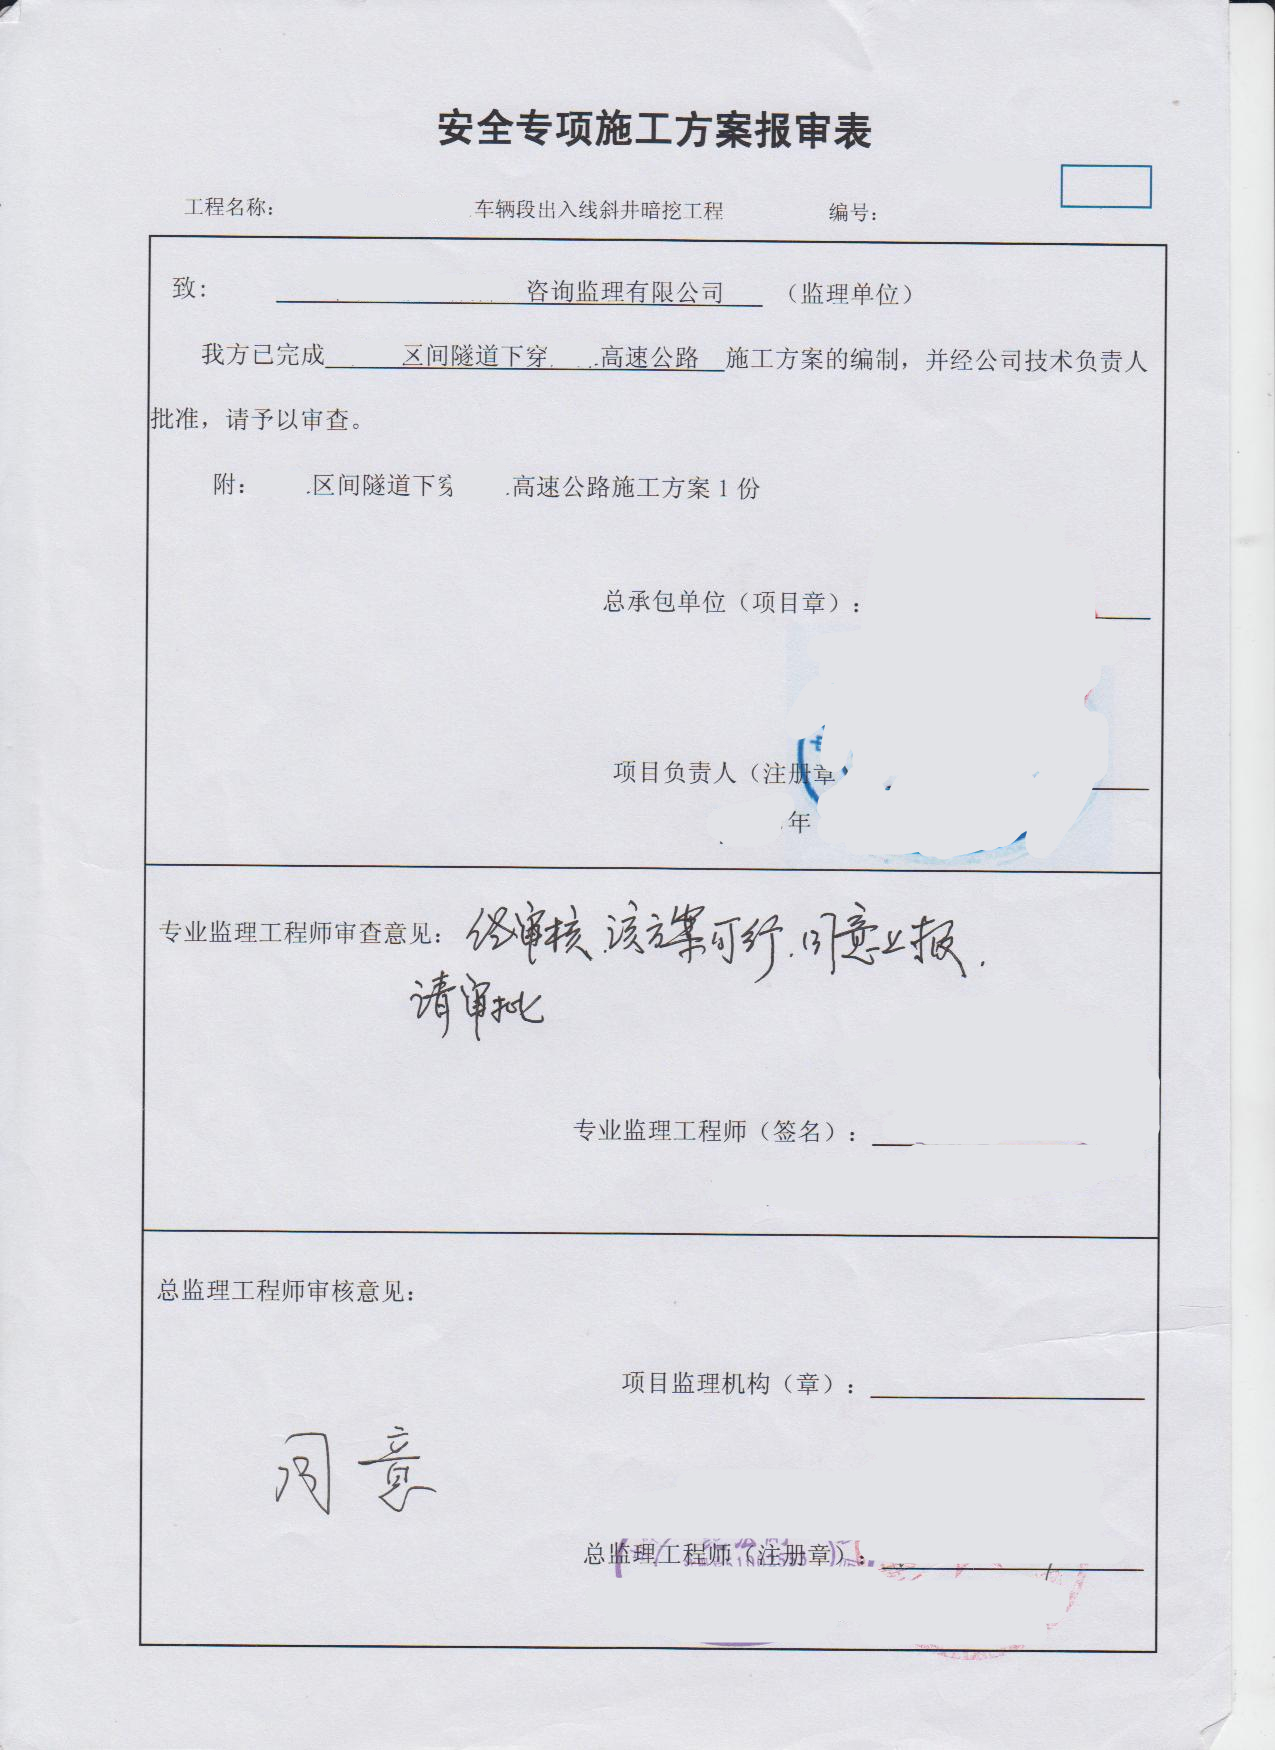 安全专项施工方案报审表
工程名称： 车辆段出入线斜井暗挖工程 编号：
致： 咨询监理有限公司 （监理单位）
我方已完成 区间隧道下穿 高速公路 施工方案的编制，并经公司技术负责人
批准，请予以审查。
附： 区间隧道下穿 高速公路施工方案 1 份
总承包单位（项目章）：
项目负责人（注册章
年
专业监理工程师审查意见：经审核，该方案可行，同意上报。
请审批
专业监理工程师（签名）：
总监理工程师审核意见：
项目监理机构（章）：
同意
总监理工程师（注册章）：